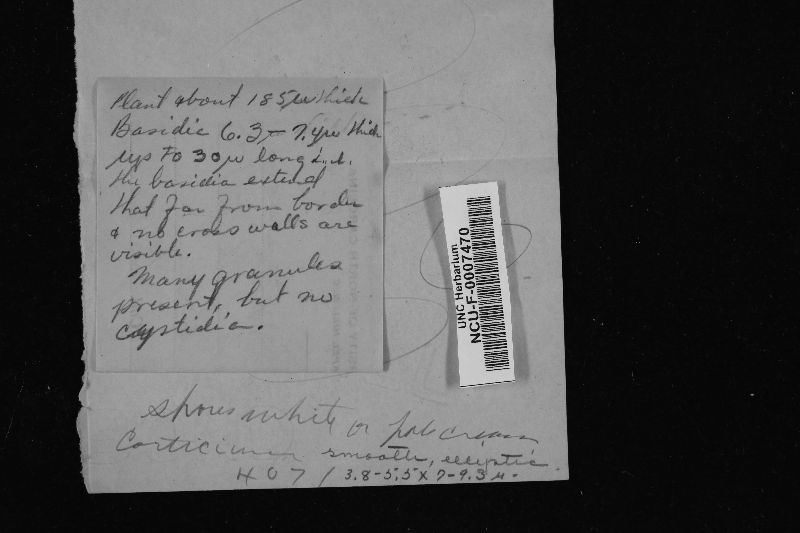 Plant about 185µ thick
Basidia 6.3-7.4µ thick
ups to 30µ long i.e.
the basidia extend
that far from border
& no cross walls are
visible.
Many granules
present, but no
cystidia.
UNC Herbarium
NCU-F-0007470
Spores white or pale cream
Corticium smooth, elliptic
407 / 3.8-5.5 x 7-9.3 µ.